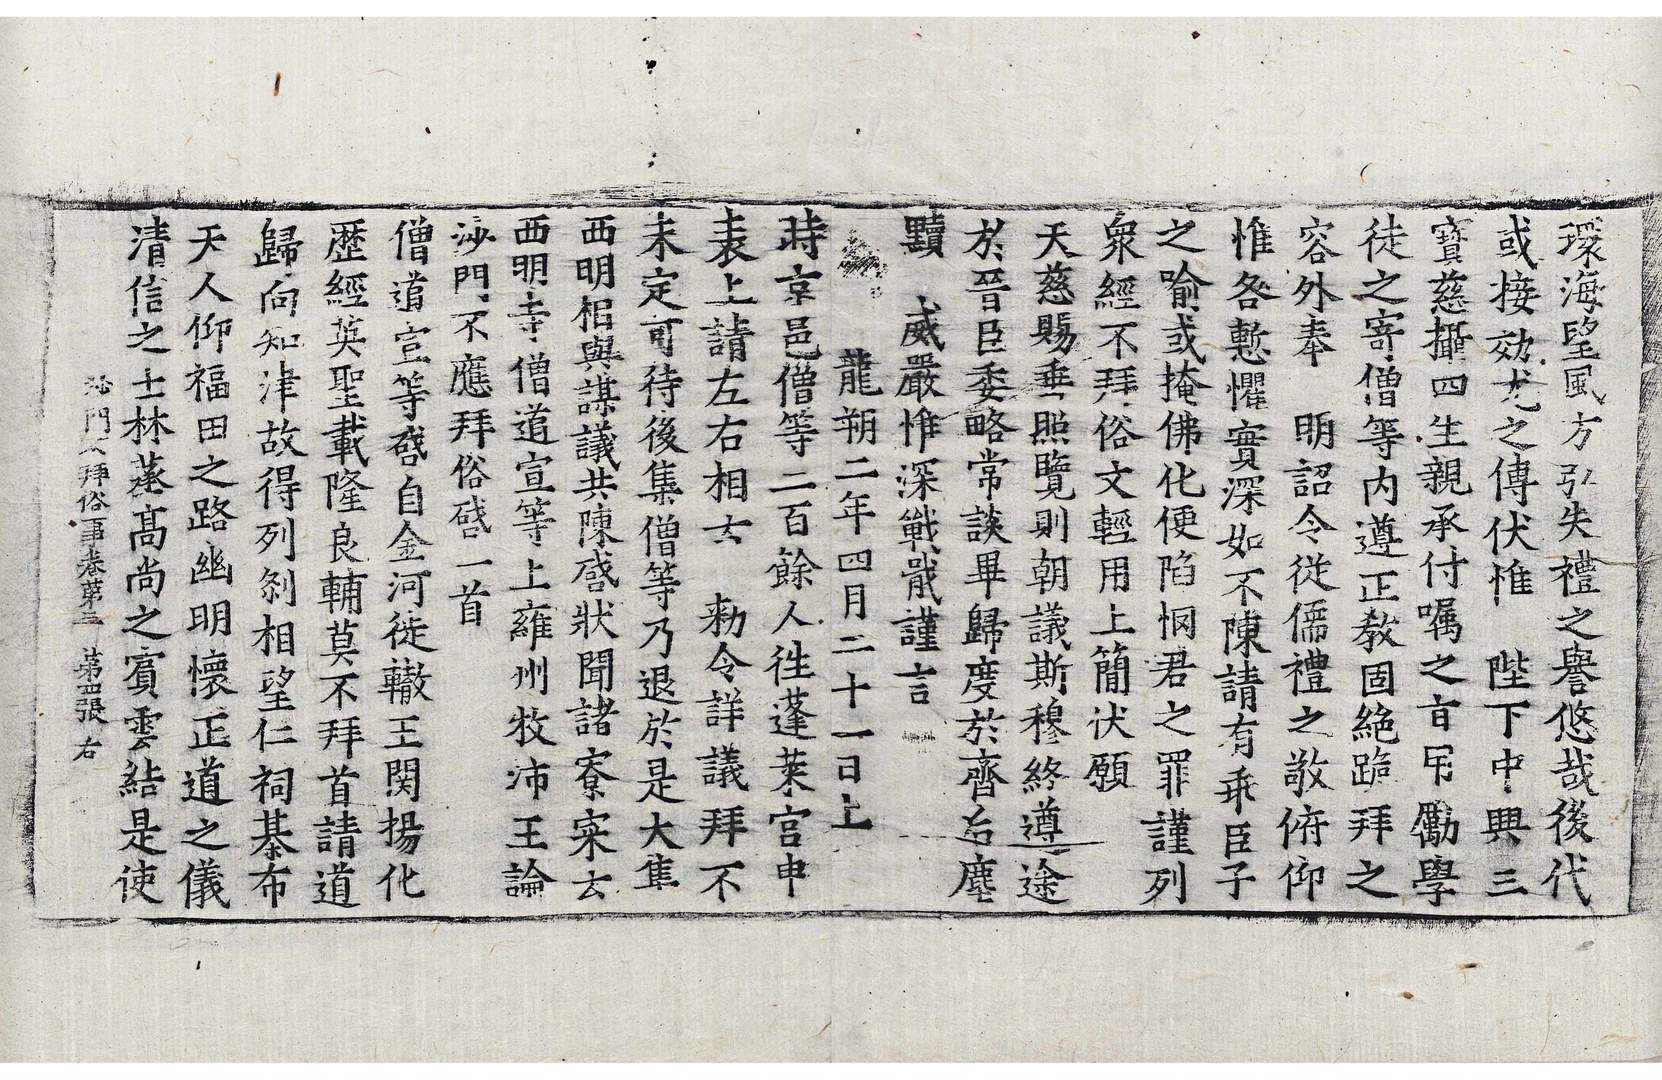 環海望風方弘失禮之譽悠哉後代
或接効尤之傳伏惟　陛下中興三
寶慈攝四生親承付囑之旨用勵學
徒之寄僧等內遵正教固絕跪拜之
容外奉　明詔令從儒禮之敬俯仰
惟咎慙懼實深如不陳請有乖臣子
之喻或掩佛化便陷惘君之罪謹列
衆經不拜俗文輕用上簡伏願
天慈賜垂照覽則朝議斯穆終遵途
於晉臣委略常談畢歸度於齊台塵
黷　威嚴惟深戰戢謹言
龍朔二年四月二十一日上
時京邑僧等二百餘人往蓬萊宮申
表上請左右相云　勑令詳議拜不
未定可待後集僧等乃退於是大集
西明相與謀議共陳啓狀聞諸寮寀云
西明寺僧道宣等上雍州牧沛王論
沙門不應拜俗啓一首
僧道宣等啓自金河徙轍玉關揚化
歷經英聖載隆良輔莫不拜首請道
歸向知津故得列剎相望仁祠棊布
天人仰福田之路幽明懷正道之儀
清信之士林蒸高尚之賓雲結是使
沙門不拜俗事卷第三　第四張　右